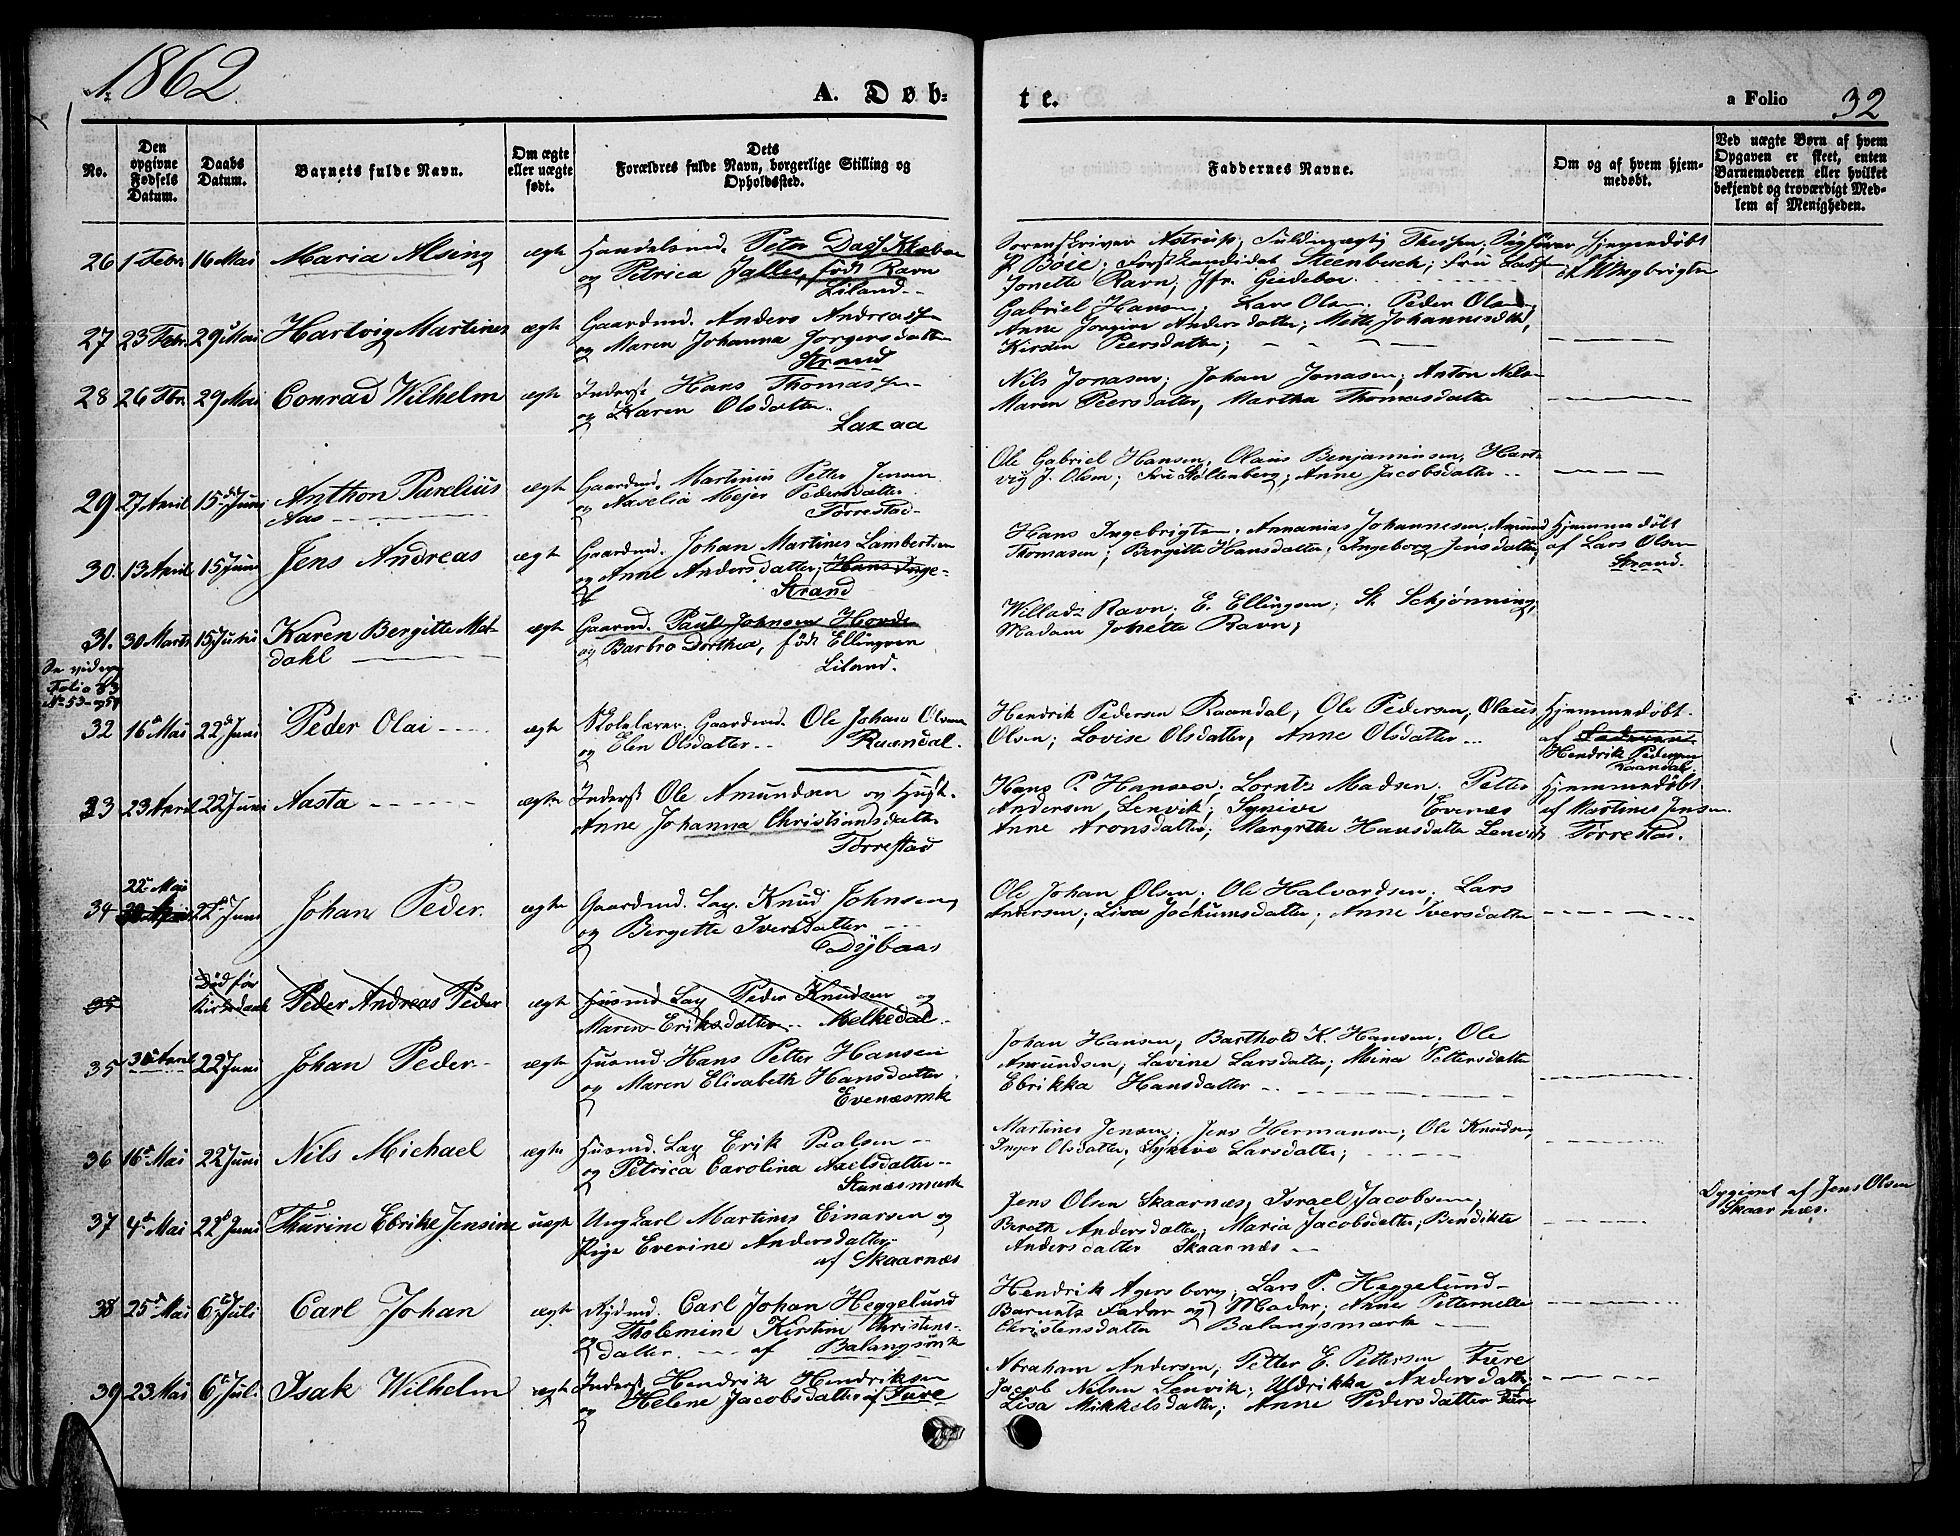 1862.
A. Døb-
te.
a Folio 32
No.
Den opgivne Fødsels Datum.
Daabs Datum.
Barnets fulde Navn.
Om ægte eller uægte født.
Dets Forældres fulde Navn, borgerlige Stilling og Opholdssted.
Faddernes Navne.
Om og af hvem hjemmedøbt.
Ved uægte Børn af hvem Opgaven er skeet, enten Barnemoderen eller hvilket bekjendt og troværdigt Medlem af Menigheden.
26 1 Febr. 16 Mai Maria Alsing ægte Handelsmd. Peter Dass Klæboe
og Petrica Jalles, født Ravn
Liland
Sorenskriver Astrup; Fuldmægtig
P. Bøie; Forstkandidat Steenbuch; Fru
Jonette Ravn, Jfr. Giedebo.
Hjemmedøbt
27 23 Febr. 29 Mai Hartvig Martines ægte Gaardmd. Anders Andreassen
og Maren Johanna Jørgensdatter
Strand
Gabriel Hansen; Lars Olsen; Peder Olsen
Anne Jorgine Andersdatter; Mette Johannesdtr;
Kirsten Peersdatter;
28 26 Fbr. 29 Mai Conrad Wilhelm ægte Inderst Hans Thomassen
og Karen Olsdatter.
Laxaa
Nils Jonasen; Johan Jonasen; Anton Nils
Maren Peersdatter, Martha Thomasdatter
29 27 April 15de Juni Anthon Parelius ægte Gaardmd. Martinus Petter Jensen
Aas
og Aaselia Mejer Pedersdatter
Torrestad
Ole Gabriel Hansen, Olaus Benjaminsen, Hart-
vig J. Olsen; Fru Stoltenberg; Anne Jacobsdatter
30. 13 April 15 Juni Jens Andreas ægte Gaardmd. Johan Martines Lambertsen
og Anne Andersdatter; Hans Inge-
Strand
Hans Ingebrigtsen. Annanias Johannesen, Amund
Thomasen; Bergitte Hansdatter; Ingeborg Jensdatter
Hjemmedøbt
af Lars Olsen
Strand.
31. 30 Marts 15 Juni Karen Bergitte Mel- ægte Gaardmd. Paul Johnsen Horde
dahl
og Barbro Dorthea, født Ellingsen
Liland.
Willads Ravn; E. Ellingsen; St. Schjønning,
Madam Jonette Ravn;
Se videre
Folio 33
No 53 og 54
32 16de Mai 22de Juni Peder Olai ægte Skolelærer, Gaardmd. Ole Johan Olsen
og Elen Olsdatter
Raandal.
Hendrik Pedersen Raandal, Ole Pedersen, Olaus
Olsen; Lovise Olsdatter, Anne Olsdatter
Hjemmedøbt
af
Hendrik Pedersen
Raandal
33 23 April 22 Juni Aasta ægte Inderst Ole Amundsen og Hust.
Anne Johanna Christiansdatter
Torrestad
Hans P. Hansen; Lorntz Madsen; Petter
Andersen Lenvik; Synive Evenæs
Anne Aronsdatter; Margrethe Hansdatter Lenvik
Hjemmedøbt
af Martines Jensen
Torrestad.
34 22 Mai 22de Juni Johan Peder. ægte Gaardmd. Lap. Knud Johnsen
og Bergette Iversdatter
Dybaas
Ole Johan Olsen; Ole Halvardsen; Lars
Andersen; Lisa Jochumsdatter; Anne Iversdatter
35 Død før Kirkedaab Peder Andreas Peder ægte Husmd Lap Peder Knudsen og
Maren Eriksdatter Melkedal
35 30 April 22 Juni Johan Peder ægte Husmd. Hans Petter Hansen
og Maren Elisabeth Hansdatter
Evenæsmk
Johan Hansen, Barthold K. Hansen; Ole
Amundsen, Lavine Larsdatter; Mina Pettersdatter
Ebrikka Hansdatter
36 16de Mai 22 Juni Nils Michael ægte Husmd. Lap Erik Paalsen
og Petrica Carolina Nilsdatter
Stunesmark
Martines Jensen; Jens Hermansen; Ole Knudsen,
Inger Olsdatter, Synive Larsdatter;
37 4de Mai 22de Juni Thurine Ebrike Jensine uægt Ungkarl Martines Einarsen og
Pige Everine Andersdatter
af Skaarnæs
Jens Olsen Skaarnæs, Israel Jacobsen,
Bereth Andersdatter; Maria Jacobsdatter, Bendikte
Andersdatter Skaarnæs
Opgivet af Jens Olsen
Skaarnæs.
38 25de Mai 6te Juli Carl Johan ægte Rydmd. Carl Johan Heggelund
og Tholemine Kirstine Christens-
datter. af Balangsmk
Hendrik Agersborg, Lars P. Heggelund
Barnets Fader og Moder; Anne Petternelle
Christensdatter Balangsmark
39 23 Mai 6te Juli Isak Wilhelm ægt Inderst Hendrik Hendriksen
og Helene Jacobsdatter af Ture
Abraham Andersen; Petter E. Pettersen Ture
Jacob Nilsen Lenvik; Uldrikka Andersdatter
Lisa Mikkelsdatter; Anne Pedersdatter Ture